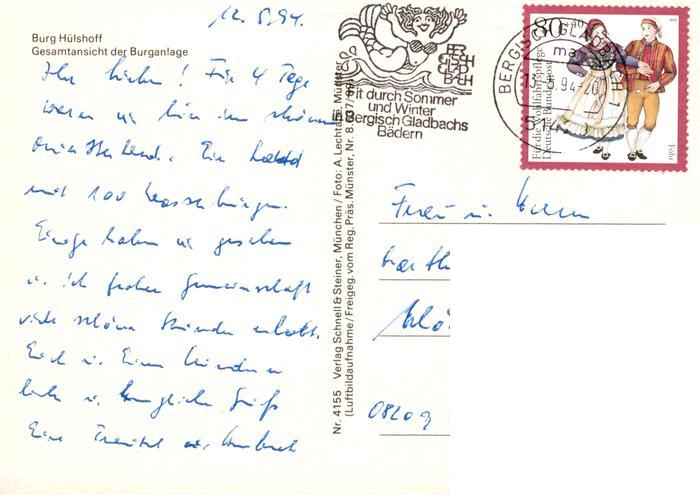 12. 5. 94.
Burg Hülshoff
Gesamtansicht der Burganlage
Ihr lieben! Für 4 Tage
waren wir hier im schönen
Münsterland. Ein Land
mit 100 Wasserburgen.
Einige haben wir gesehen
u. in froher Gemeinschaft
viele schöne Stunden erlebt.
Euch u. Euren Kindern
liebe u. herzliche Grüße
Eure
Nr. 4155 Verlag Schnell & Steiner, München / Foto: A. Lechtape, Münster
(Luftbildaufnahme / Freigeg. vom Reg. Präs. Münster, Nr.
BER
GISCH
GLAD
BACH
Fit durch Sommer
und Winter
Bergisch Gladbachs
Bädern
BERGISCH GLADBACH 1
ma
13.5.94-20
514
80 +40
1993
Für die Wohlfahrtspflege
Deutsche Bundespost
Föhr
Frau u. Herrn
0820